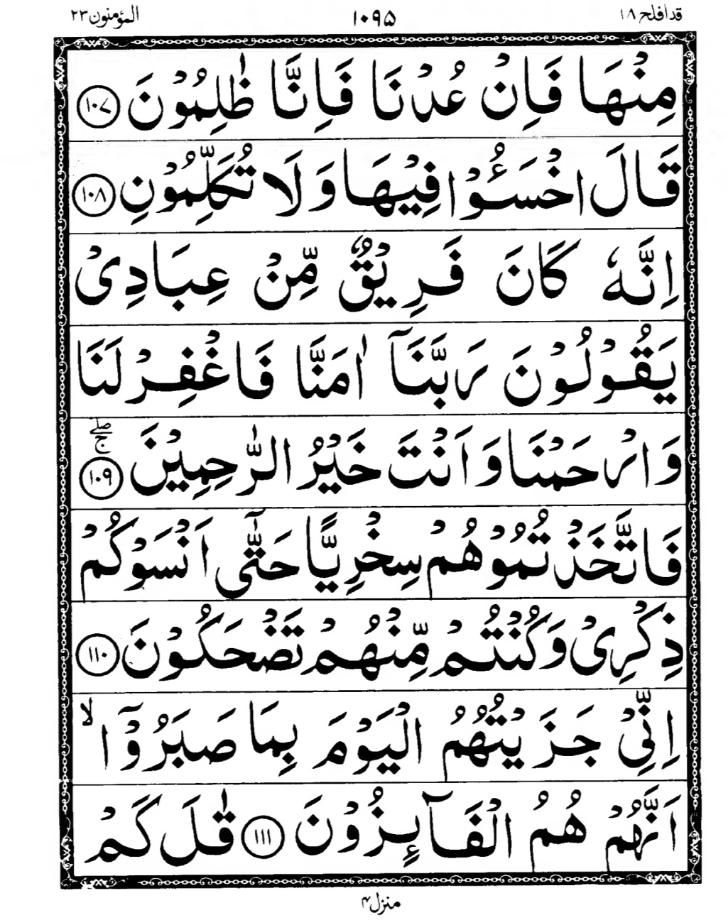 قدافلح ۱۸ ۱۰۹۵ المؤمنون ۲۳
مِنْهَا فَاِنْ عُدْنَا فَاِنَّا ظٰلِمُوْنَ ۱۰۷
قَالَ اخْسَـُٔوْا فِيْهَا وَلَا تُكَلِّمُوْنِ ۱۰۸
اِنَّهٗ كَانَ فَرِيْقٌ مِّنْ عِبَادِىْ
يَقُوْلُوْنَ رَبَّنَاۤ اٰمَنَّا فَاغْفِرْ لَنَا
وَارْحَمْنَا وَاَنْتَ خَيْرُ الرّٰحِمِيْنَ ۱۰۹ ۖۚ
فَاتَّخَذْتُمُوْهُمْ سِخْرِيًّا حَتّٰٓى اَنْسَوْكُمْ
ذِكْرِىْ وَكُنْتُمْ مِّنْهُمْ تَضْحَكُوْنَ ۱۱۰
اِنِّىْ جَزَيْتُهُمُ الْيَوْمَ بِمَا صَبَرُوْۤا ۙ
اَنَّهُمْ هُمُ الْفَآٮِٕزُوْنَ ۱۱۱ قٰلَ كَمْ
منزل ۴